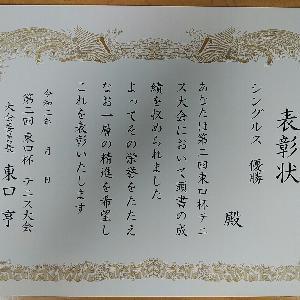 表彰状
シングルス 優勝
殿
あなたは第二回東口杯テニ
ス大会において頭書の成
績を収められました
よってその栄誉をたたえ
なお一層の精進を希望し
これを表彰いたします
令和二年 月 日
第二回東口杯テニス大会
大会委員長 東口 亨